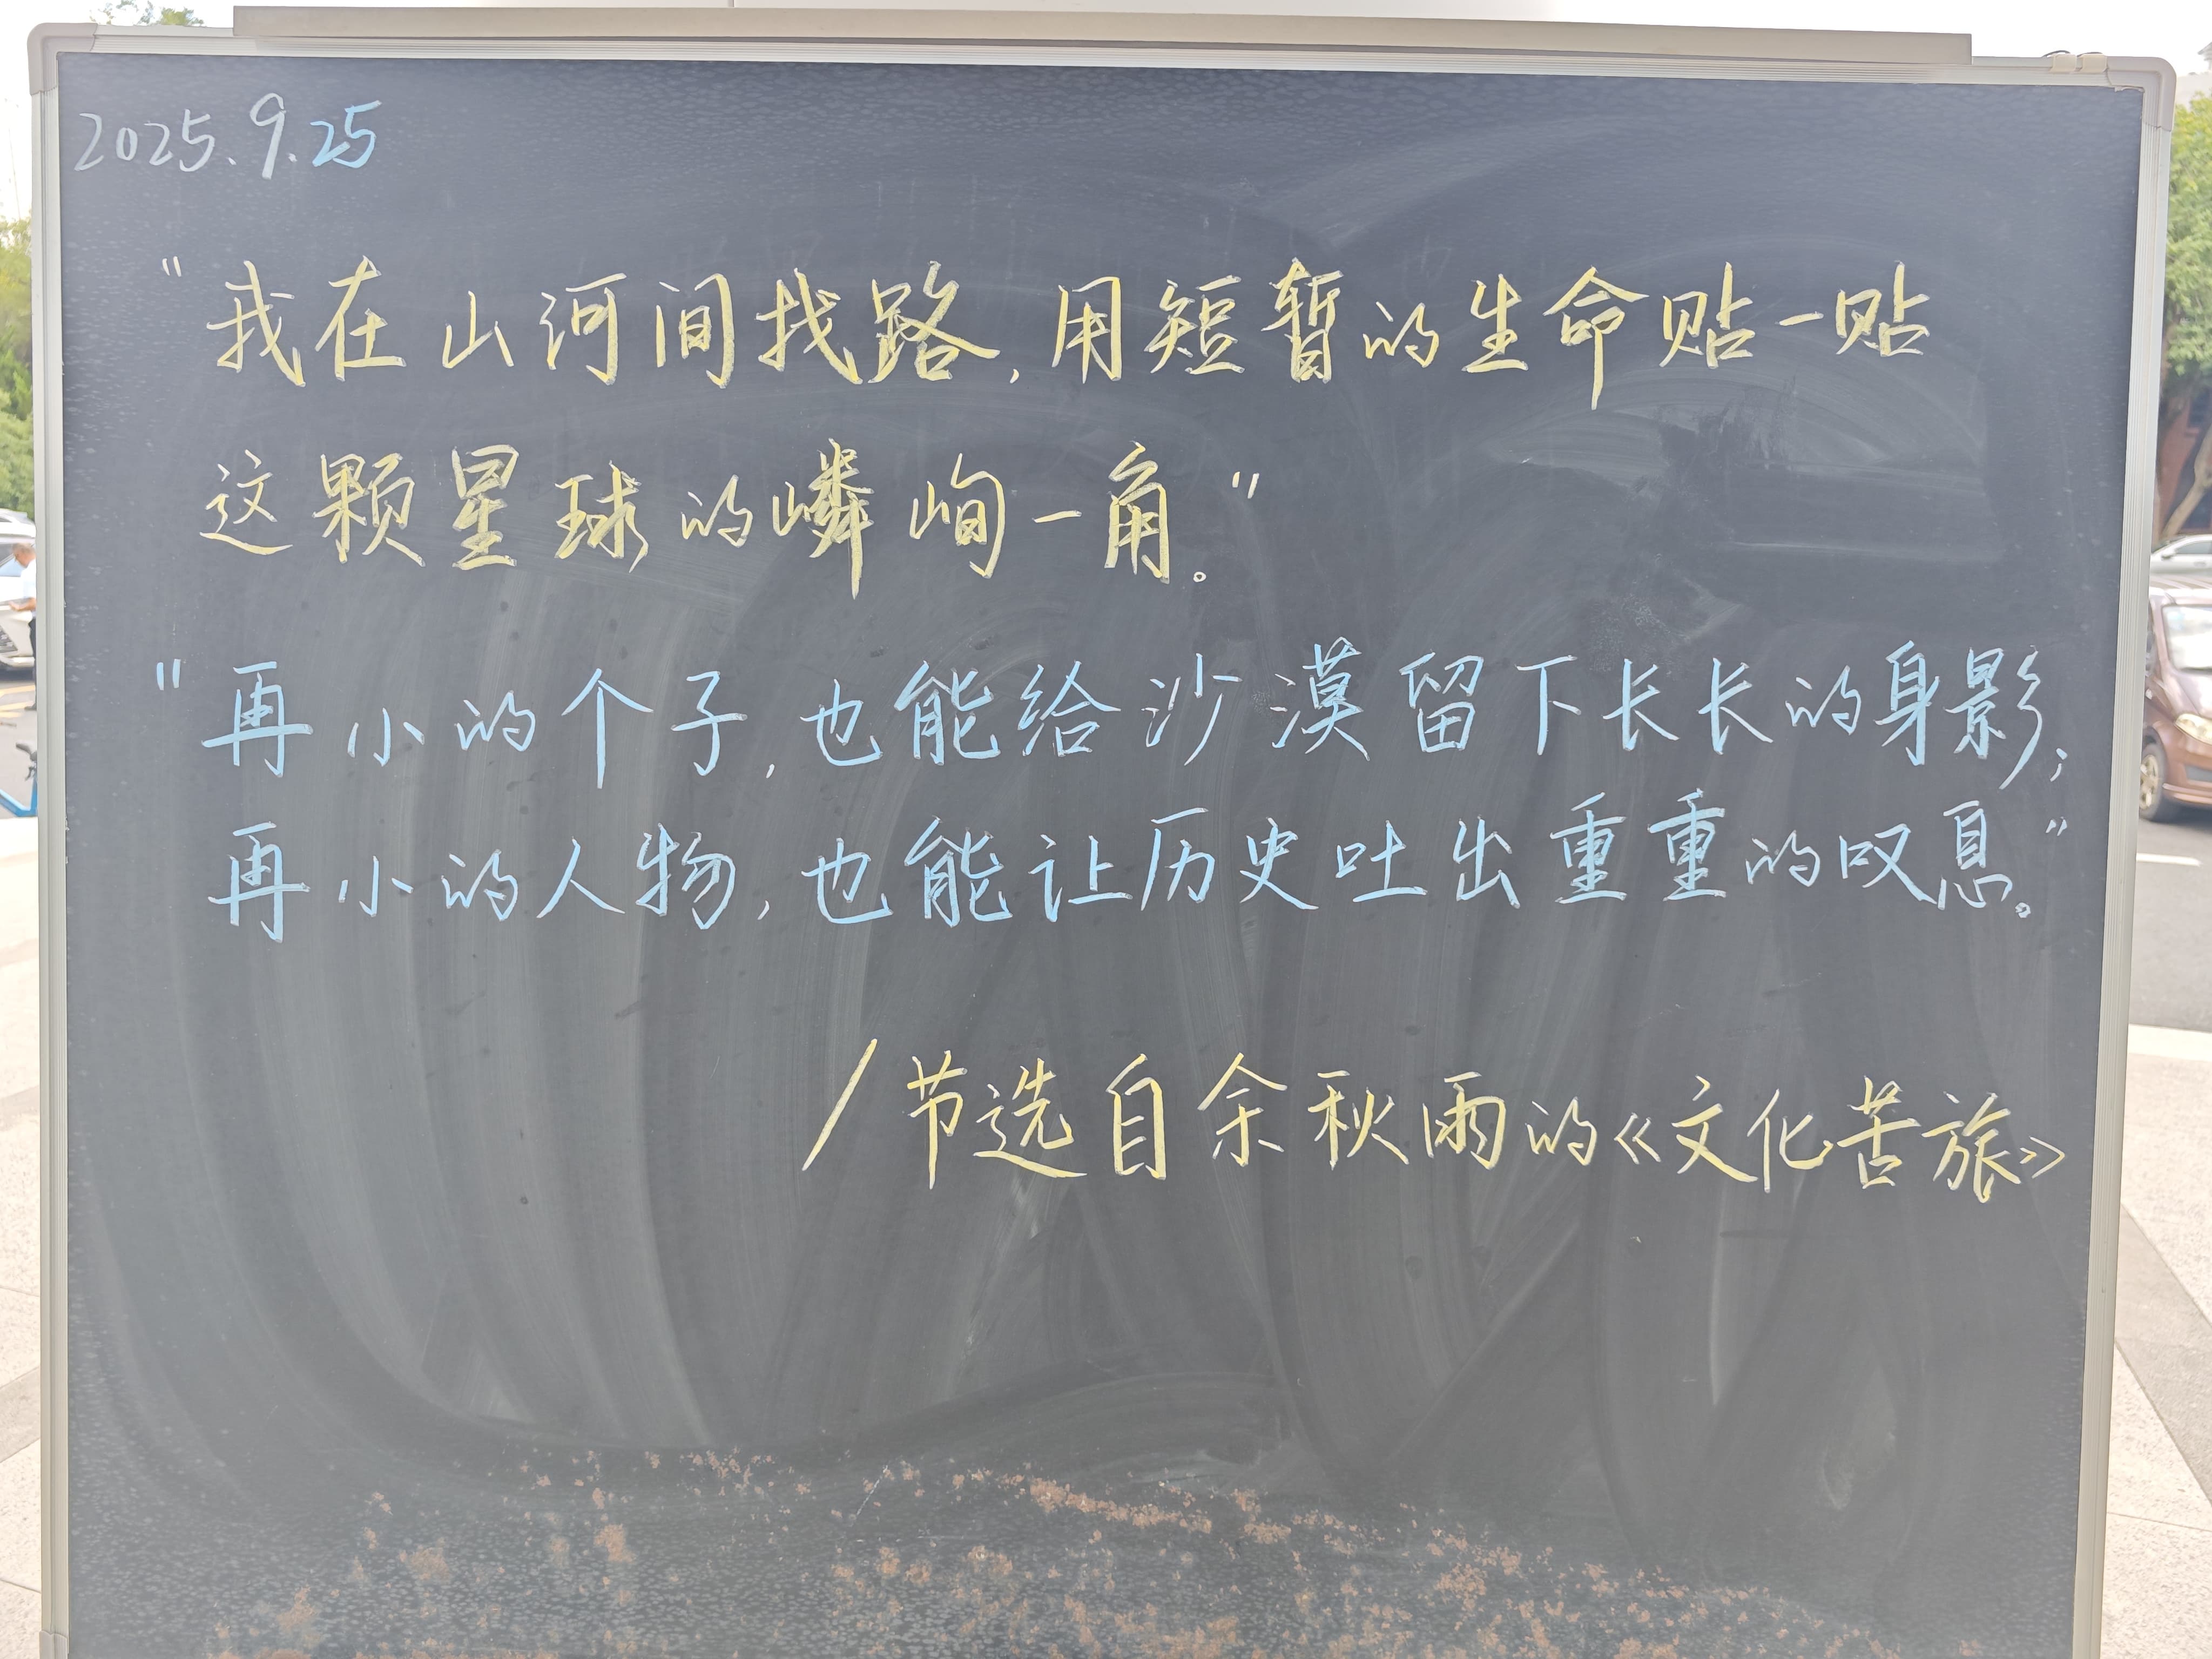 2025.9.25
"我在山河间找路,用短暂的生命贴一贴
这颗星球的嶙峋一角。"
"再小的个子,也能给沙漠留下长长的身影;
再小的人物,也能让历史吐出重重的叹息。"
/节选自余秋雨的《文化苦旅》